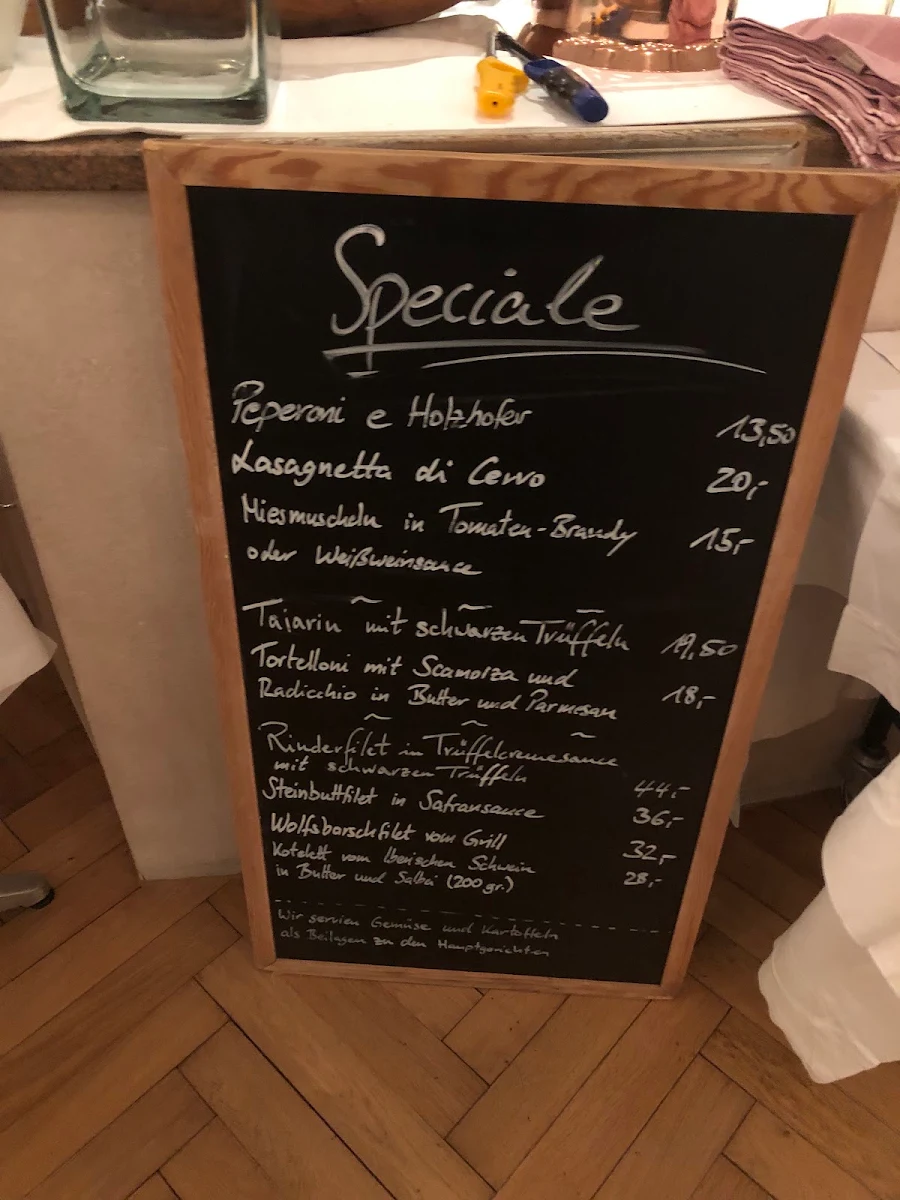 Speciale
Peperoni e Holzhofer 13,50
Lasagnetta di Cervo 20,-
Miesmuscheln in Tomaten-Brandy 15,-
oder Weißweinsauce
Tajarin mit schwarzen Trüffeln 19,50
Tortelloni mit Scamorza und
Radicchio in Butter und Parmesan 18,-
Rinderfilet in Trüffelcremesauce
mit schwarzen Trüffeln 44,-
Steinbuttfilet in Safransauce 36,-
Wolfsbarschfilet vom Grill 32,-
Kotelett vom Iberischen Schwein
in Butter und Salbei (200 gr.) 28,-
Wir servien Gemüse und Kartoffeln
als Beilagen zu den Hauptgerichten